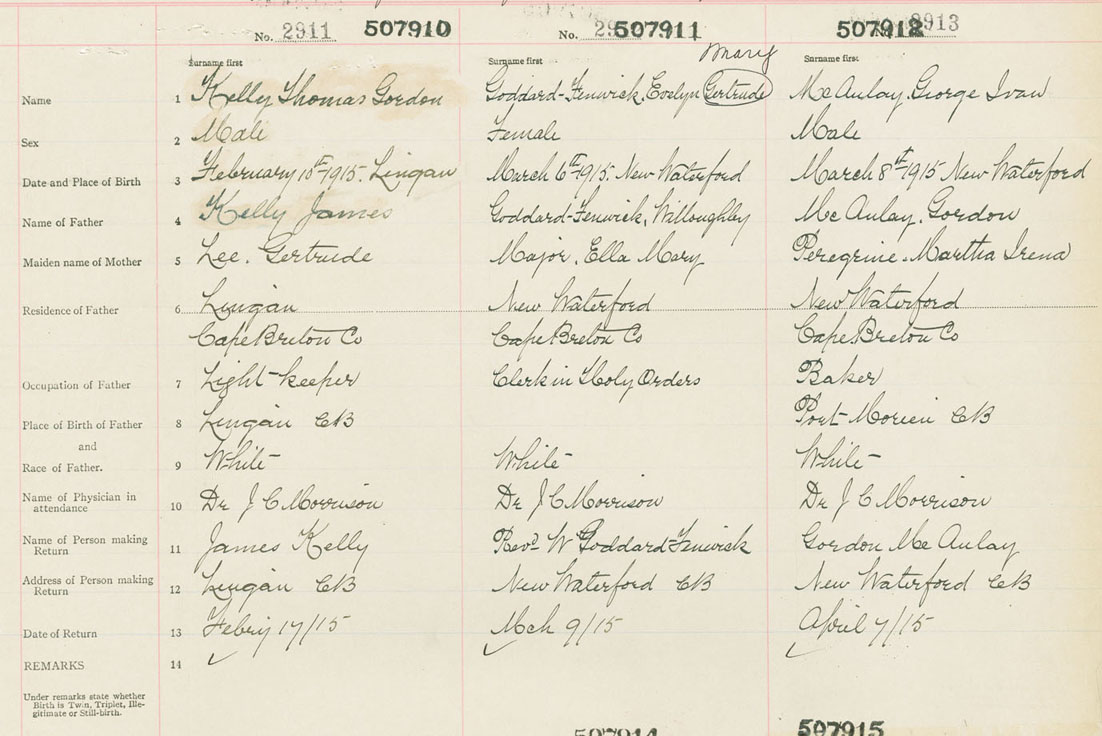 No. 2911 507910 No. 29 507911 507912 2913
Mary
Surname first Surname first Surname first
Name 1 Kelly Thomas Gordon Goddard-Fenwick, Evelyn Gertrude McAulay, George Ivan
Sex 2 Male Female Male
Date and Place of Birth 3 February 10th 1915. Lingan March 6th 1915. New Waterford March 8th 1915 New Waterford
Name of Father 4 Kelly James Goddard-Fenwick, Willoughby McAulay, Gordon
Maiden name of Mother 5 Lee, Gertrude Major, Ella Mary Peregrine, Martha Irena
Residence of Father 6 Lingan New Waterford New Waterford
Cape Breton Co Cape Breton Co Cape Breton Co
Occupation of Father 7 Light-keeper Clerk in Holy Orders Baker
Place of Birth of Father 8 Lingan CB Port Morien CB
and
Race of Father. 9 White White White
Name of Physician in attendance 10 Dr J C Morrison Dr J C Morrison Dr J C Morrison
Name of Person making Return 11 James Kelly Revd W Goddard-Fenwick Gordon McAulay
Address of Person making Return 12 Lingan CB New Waterford CB New Waterford CB
Date of Return 13 Febry 17/15 Mch 9/15 April 7/15
REMARKS 14
Under remarks state whether
Birth is Twin, Triplet, Ille-
gitimate or Still-birth.
507914 507915